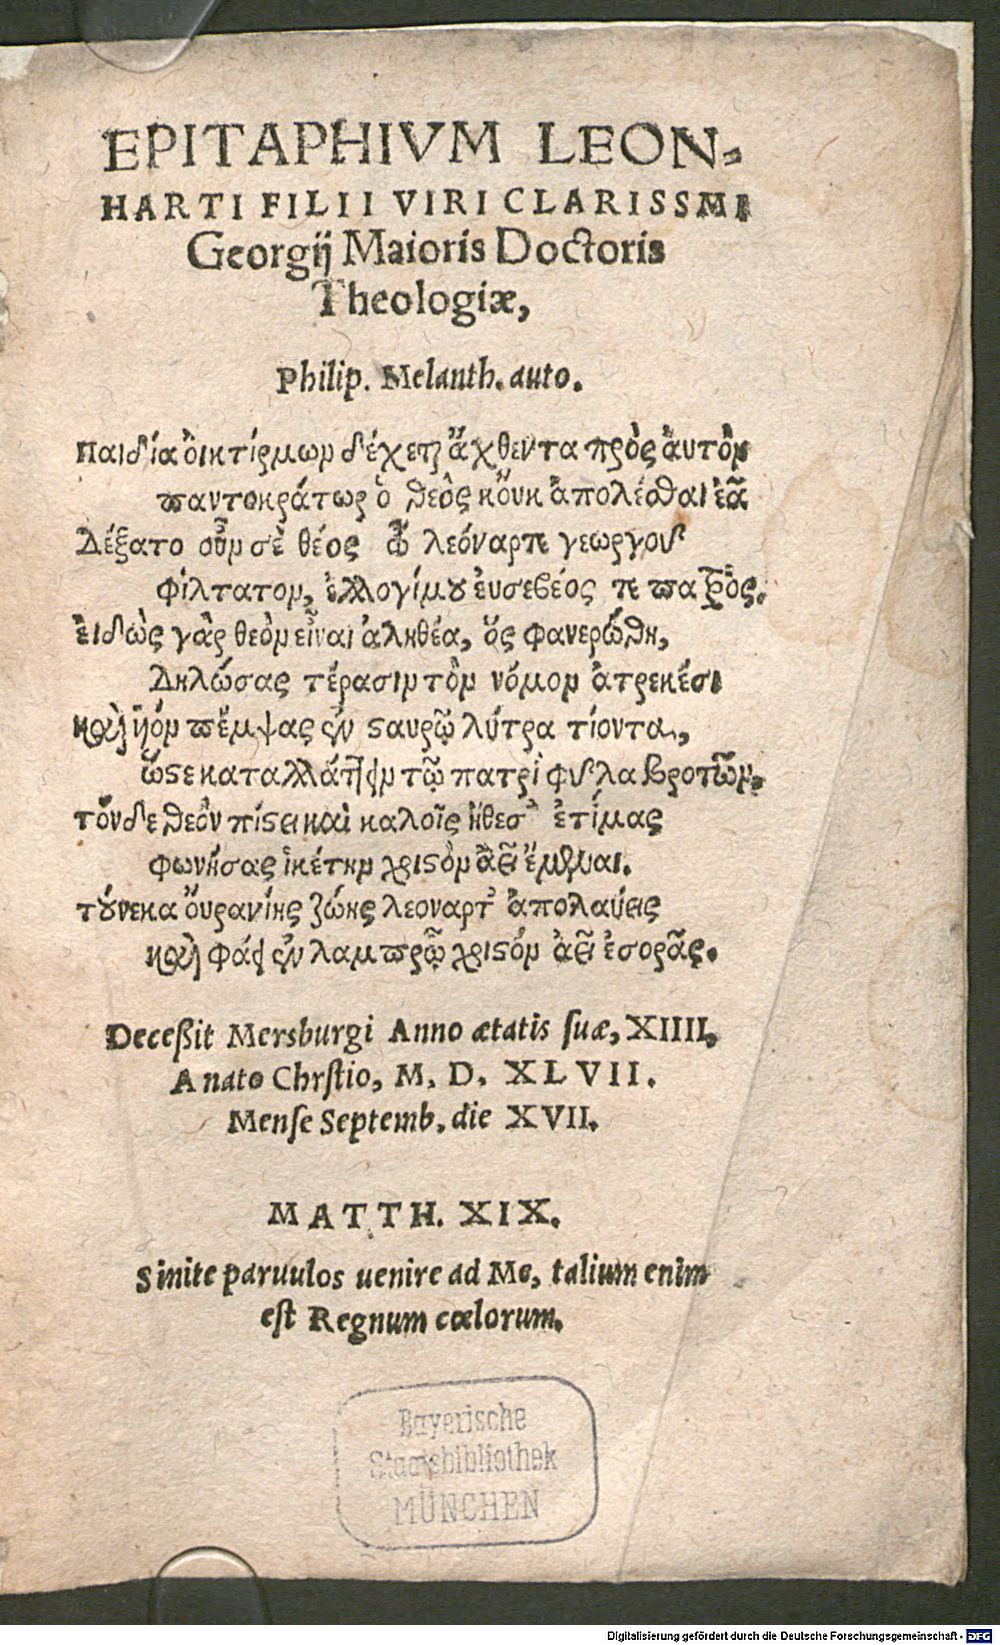 EPITAPHIVM LEON-
HARTI FILII VIRI CLARISSMI
Georgij Maioris Doctoris
Theologiæ,
Philip. Melanth. auto.
Παιδία ὀικτίρμων δέχεται ἄχθεντα πρὸς ἀυτὸν
παντοκράτωρ ὁ θεὸς κὄυκ ἀπολέσθαι ἐᾶ
Δέξατο οὖν σὲ θέος ὦ λεόναρτε γεωργου
Φίλτατον, ἐλλογίμου ἐυσεβέος τε πατρὸς.
ἐιδὼς γὰρ θεὸν εἶναι ἀληθέα, ὅς φανερώθη,
Δηλώσας τέρασιν τὸν νόμον ἀτρεκέσι
καὶ ὑιόν πέμψας ἐν σαυρῷ λύτρα τίοντα,
ὥστε καταλλάττῃν τῷ πατρὶ φυλα βροτῶν.
τόνδε θεὸν πίστει καὶ καλοῖς ἤθεσ' ἐτίμας
φωνήσας ἱκέτην χριστὸν ἀεὶ ἔμμεναι.
τούνεκα ὄυρανίης ζώης λεοναρτ' ἀπολαύεις
καὶ φάει ἐν λαμπρῷ χριστὸν ἀεὶ ἐσορᾶς.
Deceßit Mersburgi Anno ætatis suæ, XIIII.
A nato Chrstio, M. D. XLVII.
Mense Septemb. die XVII.
MATTH. XIX.
Sinite paruulos uenire ad Me, talium enim
est Regnum cœlorum.
Bayerische
Staatsbibliothek
MÜNCHEN
Digitalisierung gefördert durch die Deutsche Forschungsgemeinschaft - DFG